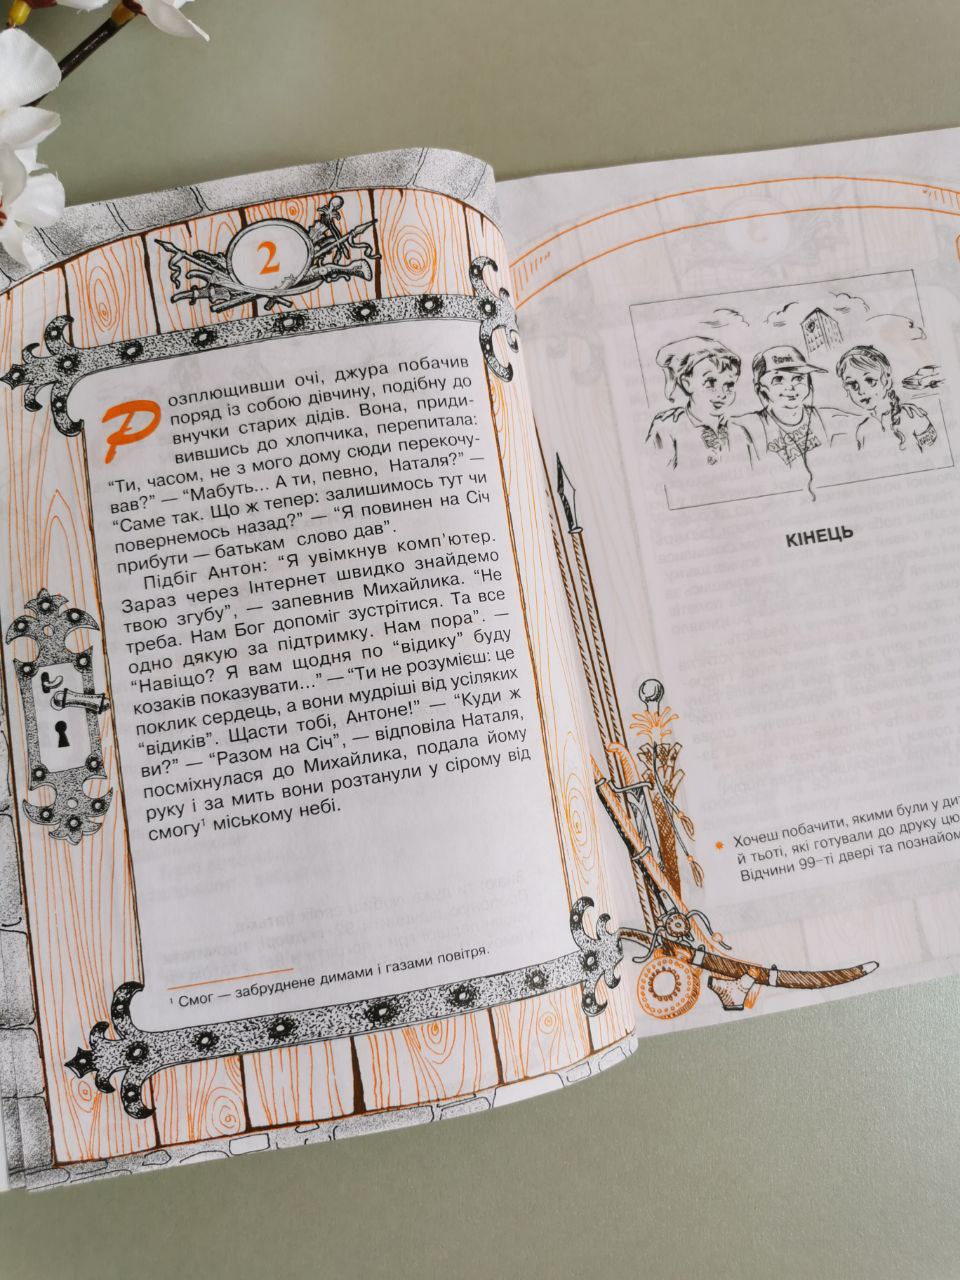 2
Розплющивши очі, джура побачив
поряд із собою дівчину, подібну до
внучки старих дідів. Вона, приди-
вившись до хлопчика, перепитала:
“Ти, часом, не з мого дому сюди перекочу-
вав?” — “Мабуть... А ти, певно, Наталя?” —
“Саме так. Що ж тепер: залишимось тут чи
повернемось назад?” — “Я повинен на Січ
прибути — батькам слово дав”.
Підбіг Антон: “Я увімкнув комп’ютер.
Зараз через Інтернет швидко знайдемо
твою згубу”, — запевнив Михайлика. “Не
треба. Нам Бог допоміг зустрітися. Та все
одно дякую за підтримку. Нам пора”. —
“Навіщо? Я вам щодня по “відику” буду
козаків показувати...” — “Ти не розумієш: це
поклик сердець, а вони мудріші від усіляких
“відиків”. Щасти тобі, Антоне!” — “Куди ж
ви?” — “Разом на Січ”, — відповіла Наталя,
посміхнулася до Михайлика, подала йому
руку і за мить вони розтанули у сірому від
смогу¹ міському небі.
¹ Смог — забруднене димами і газами повітря.
КІНЕЦЬ
Хочеш побачити, якими були у ди
й тьоті, які готували до друку цю
Відчини 99-ті двері та познайом